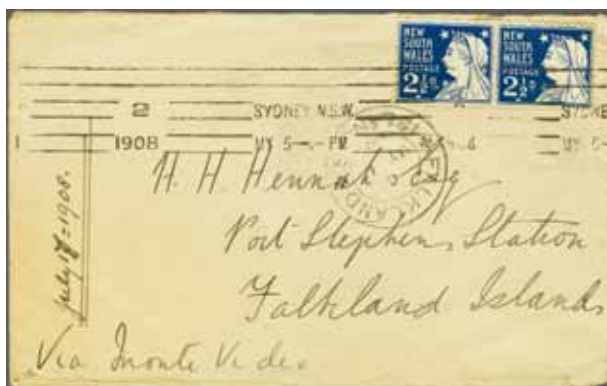 NEW SOUTH WALES POSTAGE 2½D
NEW SOUTH WALES POSTAGE 2½D
2 SYDNEY N.S.W. SYDNEY
1908 MY 5 PM 4 MY 5
FALKLAND
H. H. Hennah Esq
Port Stephens Station
Falkland Islands
Via Monte Video
July 17=1908.